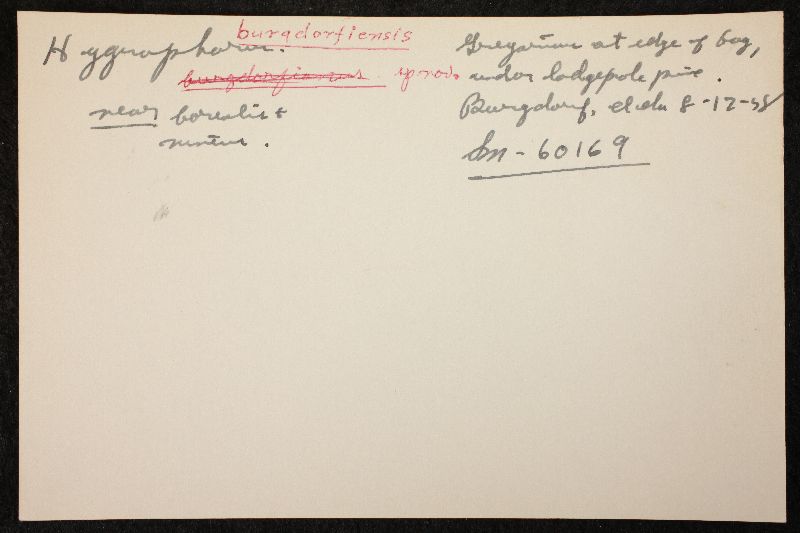 Hygrophorus. burgdorfiensis
burgdorfianus. sp nov.
near borealis +
niveus.
Gregarious at edge of bog,
under lodgepole pine.
Burgdorf, Ida 8-12-58
Sm - 60169